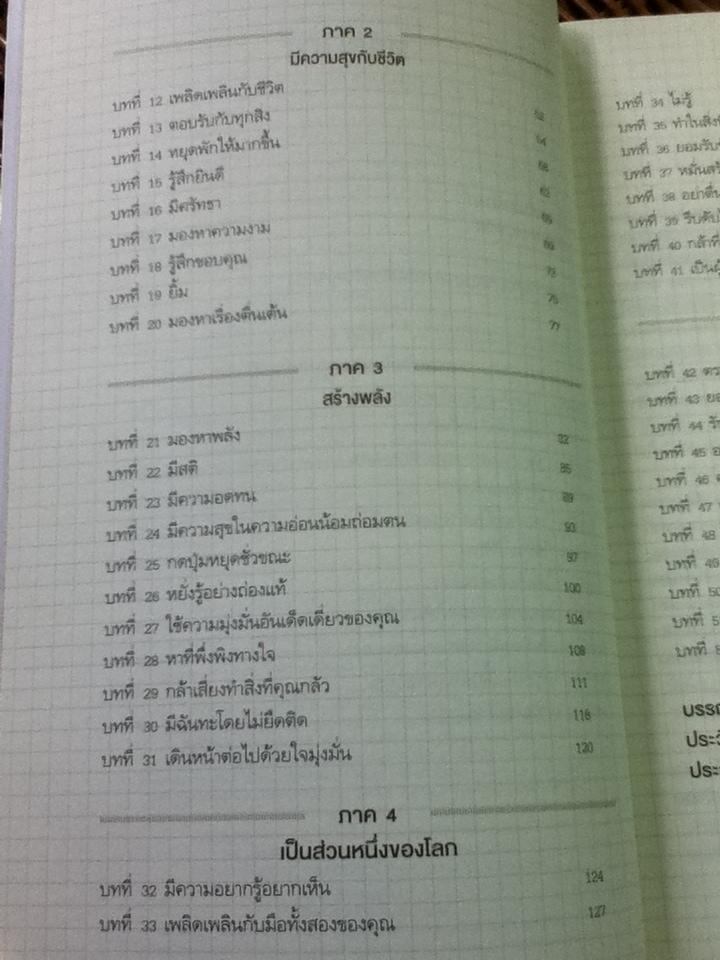 ภาค 2
มีความสุขกับชีวิต
บทที่ 12 เพลิดเพลินกับชีวิต 52
บทที่ 13 ตอบรับกับทุกสิ่ง 54
บทที่ 14 หยุดพักให้มากขึ้น 58
บทที่ 15 รู้สึกยินดี 62
บทที่ 16 มีศรัทธา 65
บทที่ 17 มองหาความงาม 69
บทที่ 18 รู้สึกขอบคุณ 73
บทที่ 19 ยิ้ม 75
บทที่ 20 มองหาเรื่องตื่นเต้น 77
ภาค 3
สร้างพลัง
บทที่ 21 มองหาพลัง 82
บทที่ 22 มีสติ 85
บทที่ 23 มีความอดทน 89
บทที่ 24 มีความสุขในความอ่อนน้อมถ่อมตน 93
บทที่ 25 กดปุ่มหยุดชั่วขณะ 97
บทที่ 26 หยั่งรู้อย่างถ่องแท้ 100
บทที่ 27 ใช้ความมุ่งมั่นอันเด็ดเดี่ยวของคุณ 104
บทที่ 28 หาที่พึ่งพิงทางใจ 108
บทที่ 29 กล้าเสี่ยงทำสิ่งที่คุณกลัว 111
บทที่ 30 มีฉันทะโดยไม่ยึดติด 116
บทที่ 31 เดินหน้าต่อไปด้วยใจมุ่งมั่น 120
ภาค 4
เป็นส่วนหนึ่งของโลก
บทที่ 32 มีความอยากรู้อยากเห็น 124
บทที่ 33 เพลิดเพลินกับมือทั้งสองของคุณ 127
บทที่ 34 ไม่รู้
บทที่ 35 ทำในสิ่ง
บทที่ 36 ยอมรับ
บทที่ 37 หมั่น
บทที่ 38 อย่าตื่น
บทที่ 39
บทที่ 40 กล้าที่
บทที่ 41 เป็น
บทที่ 42
บทที่ 43
บทที่ 44
บทที่ 45
บทที่ 46
บทที่ 47
บทที่ 48
บทที่ 49
บทที่ 50
บทที่
บทที่